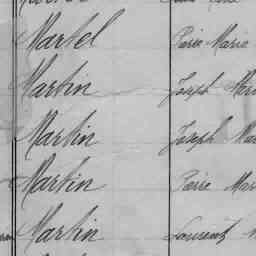 Martel Pierre Marie
Martin Joseph
Martin Joseph
Martin Pierre
Martin Laurent